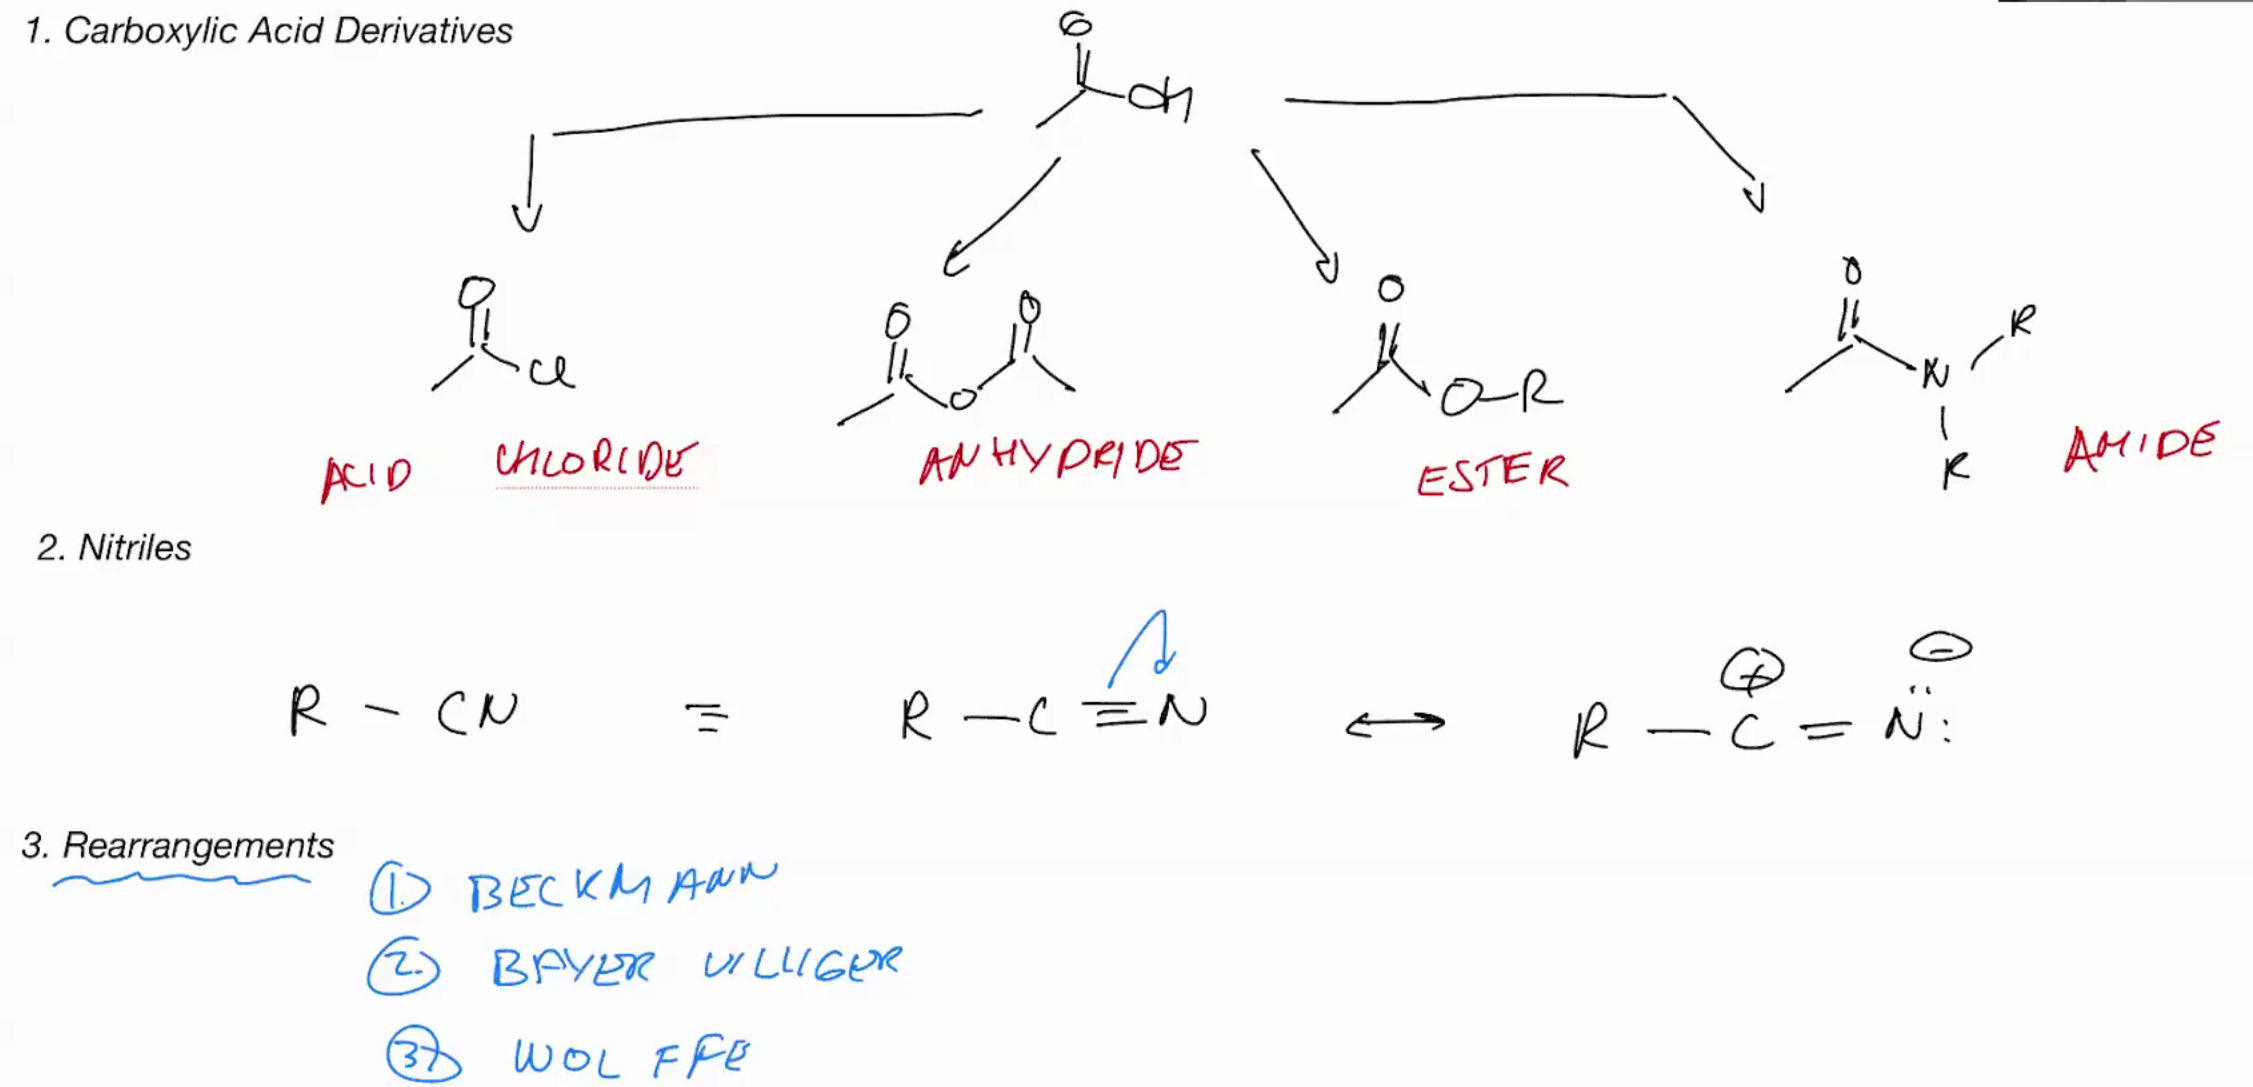 1. Carboxylic Acid Derivatives
O
OH
O
Cl
O O
O
O
O-R
O
N R
R
ACID CHLORIDE
ANHYDRIDE
ESTER
AMIDE
2. Nitriles
R - CN ≡ R - C ≡ N ↔ R - C = N:
⊕ ⊖
3. Rearrangements
① BECKMANN
② BAYER VILLIGER
③ WOLFFE